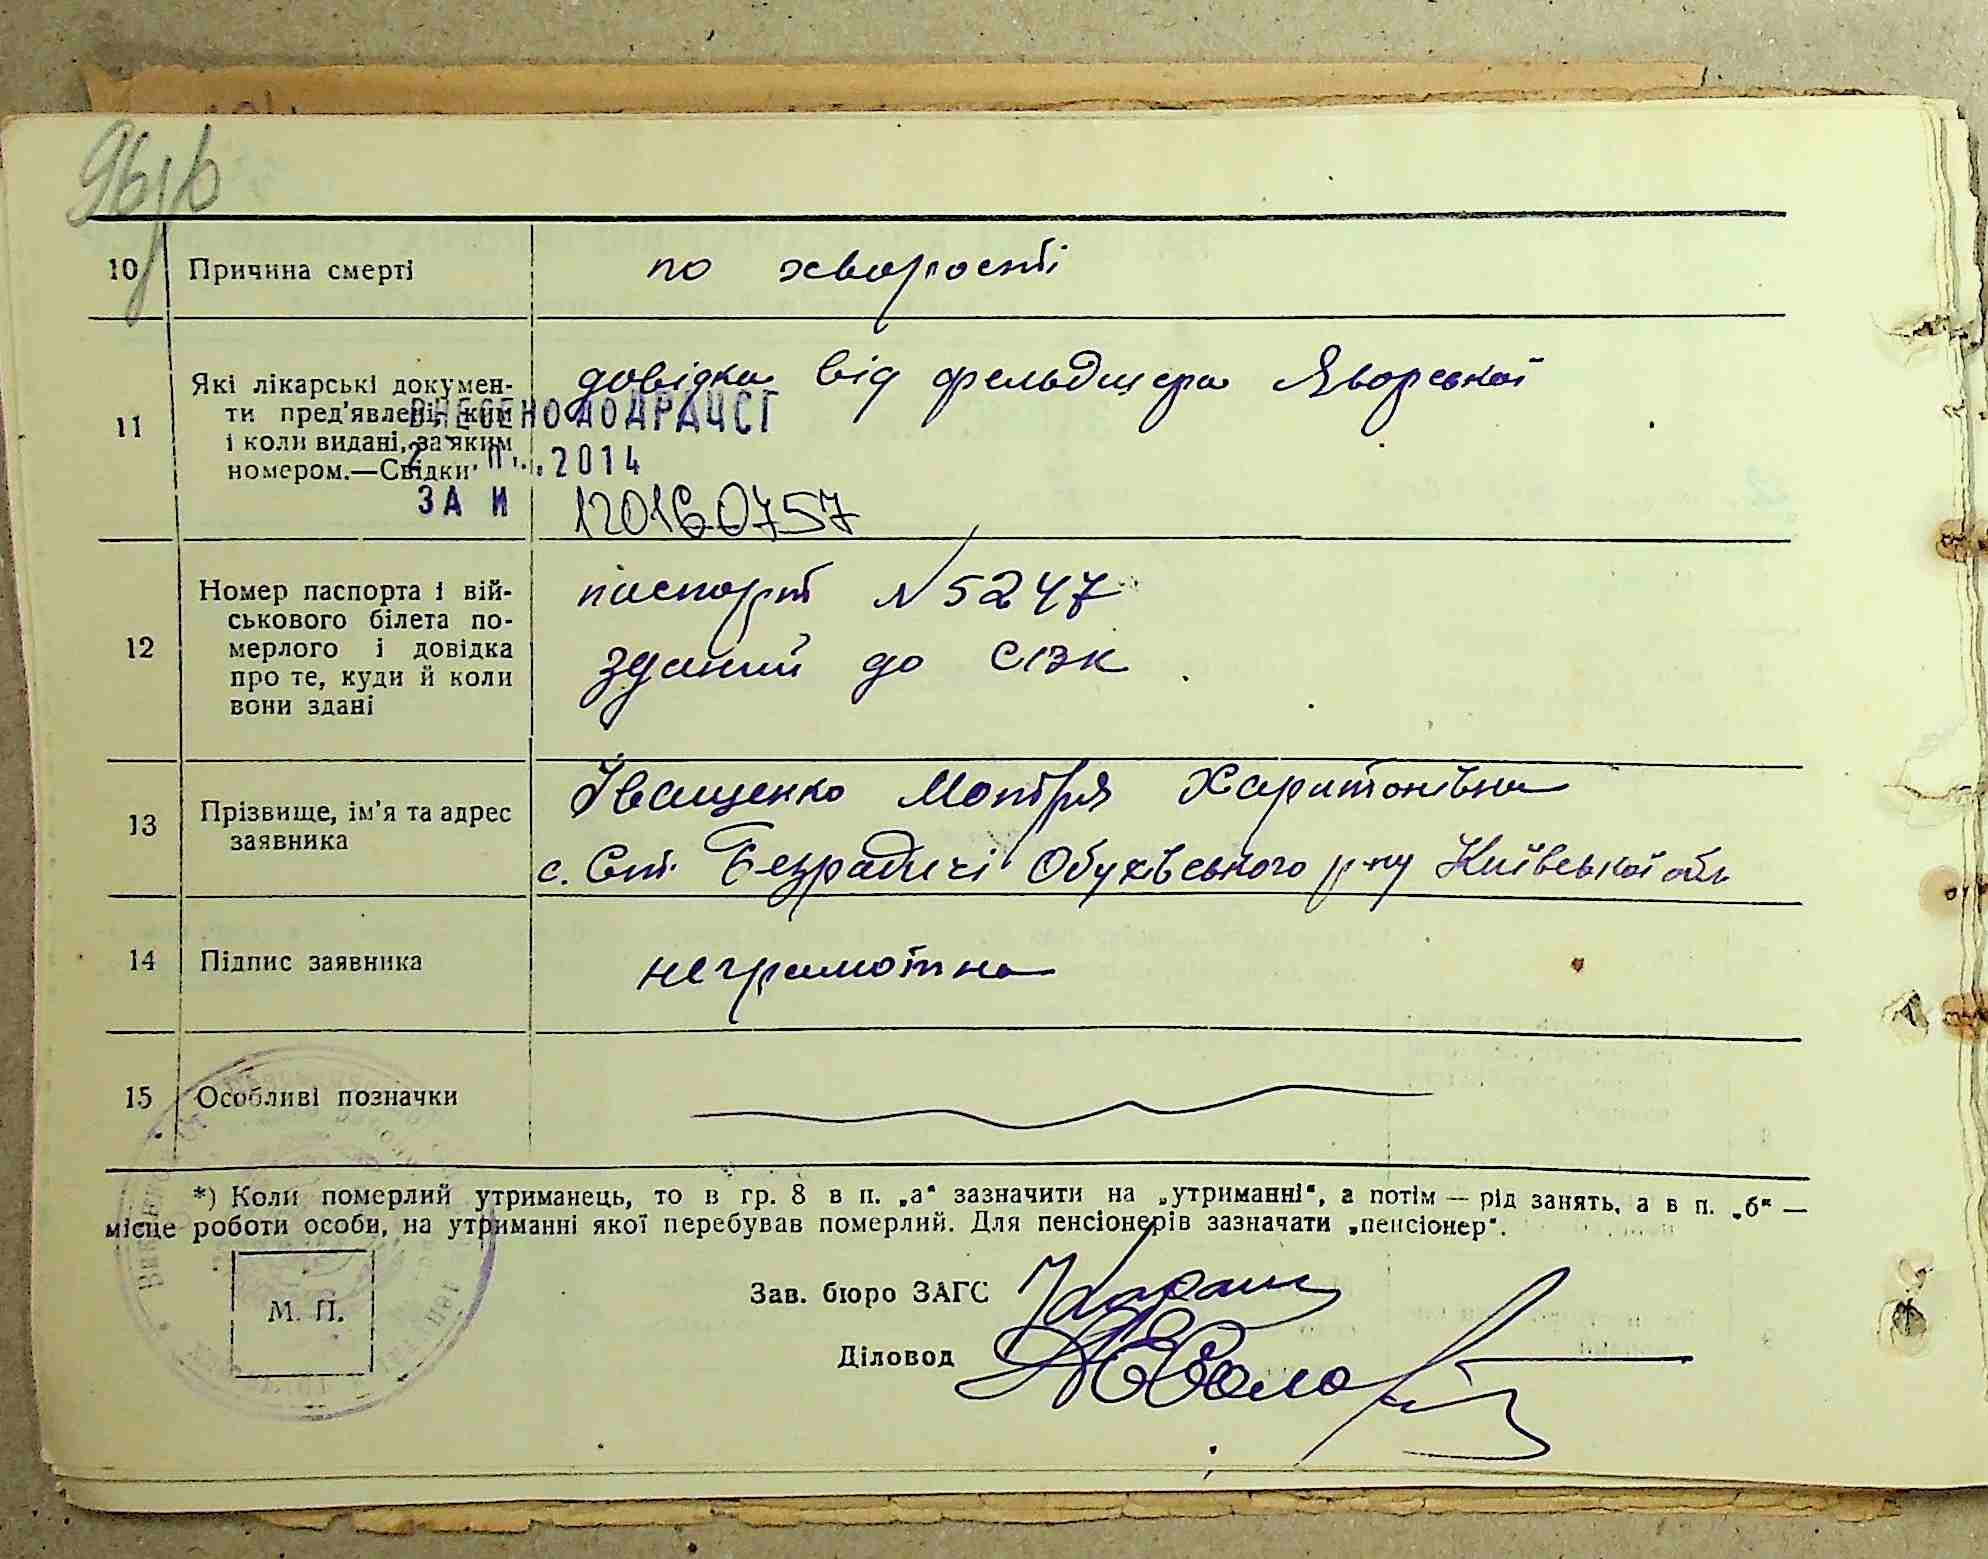 10 Причина смерті по хворості
11 Які лікарські докумен- довідка від фельдшера Яворської
ти пред'явлені, ким
ВНЕСЕНО ДО ДРАЦСГ
і коли видані, за яким
номером.—Свідки
2014
ЗА И 120160757
12 Номер паспорта і вій- паспорт N 5247
ськового білета по-
мерлого і довідка зданий до
про те, куди й коли
вони здані
13 Прізвище, ім'я та адрес Іващенко Мотря Харитонівна
заявника с. Ст. Безрадичі Обухівського р-ну Київської обл
14 Підпис заявника неграмотна
15 Особливі позначки
*) Коли померлий утриманець, то в гр. 8 в п. „а“ зазначити на „утриманні“, а потім — рід занять, а в п. „б“ —
місце роботи особи, на утриманні якої перебував померлий. Для пенсіонерів зазначати „пенсіонер“.
М. П.
Зав. бюро ЗАГС
Діловод